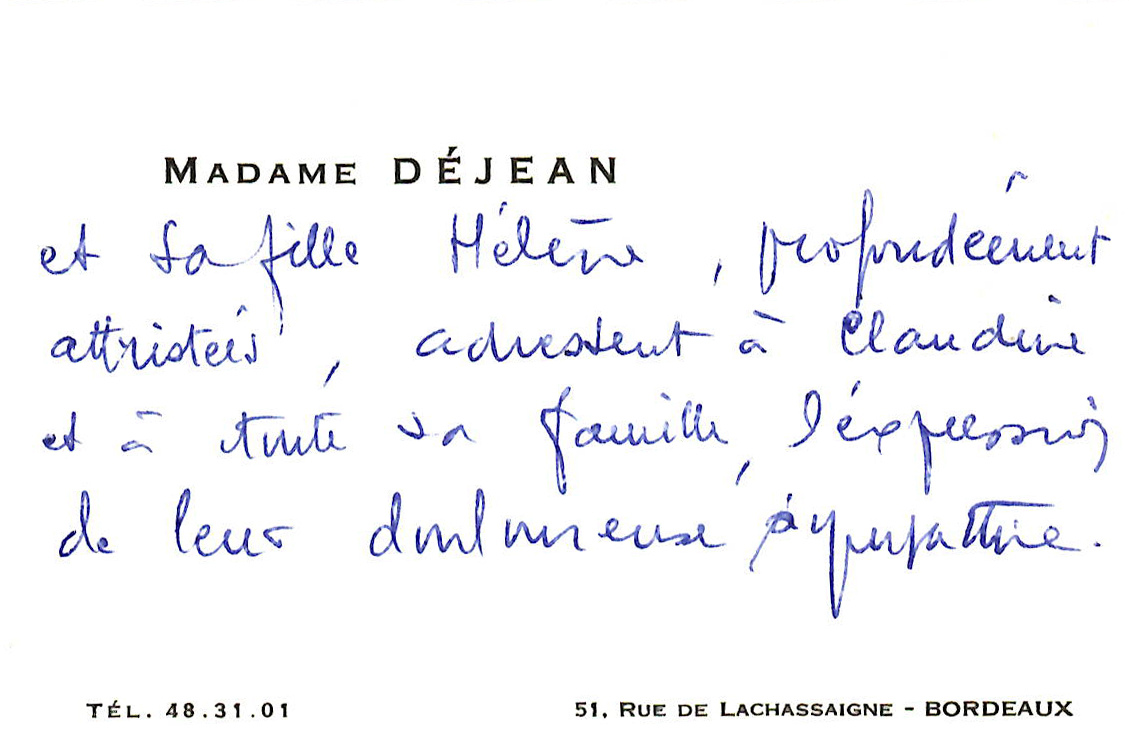 MADAME DÉJEAN
et sa fille Hélène, profondément
attristées, adressent à Claudine
et à toute sa famille, l'expression
de leur douloureuse sympathie.
TÉL. 48.31.01
51, RUE DE LACHASSAIGNE - BORDEAUX